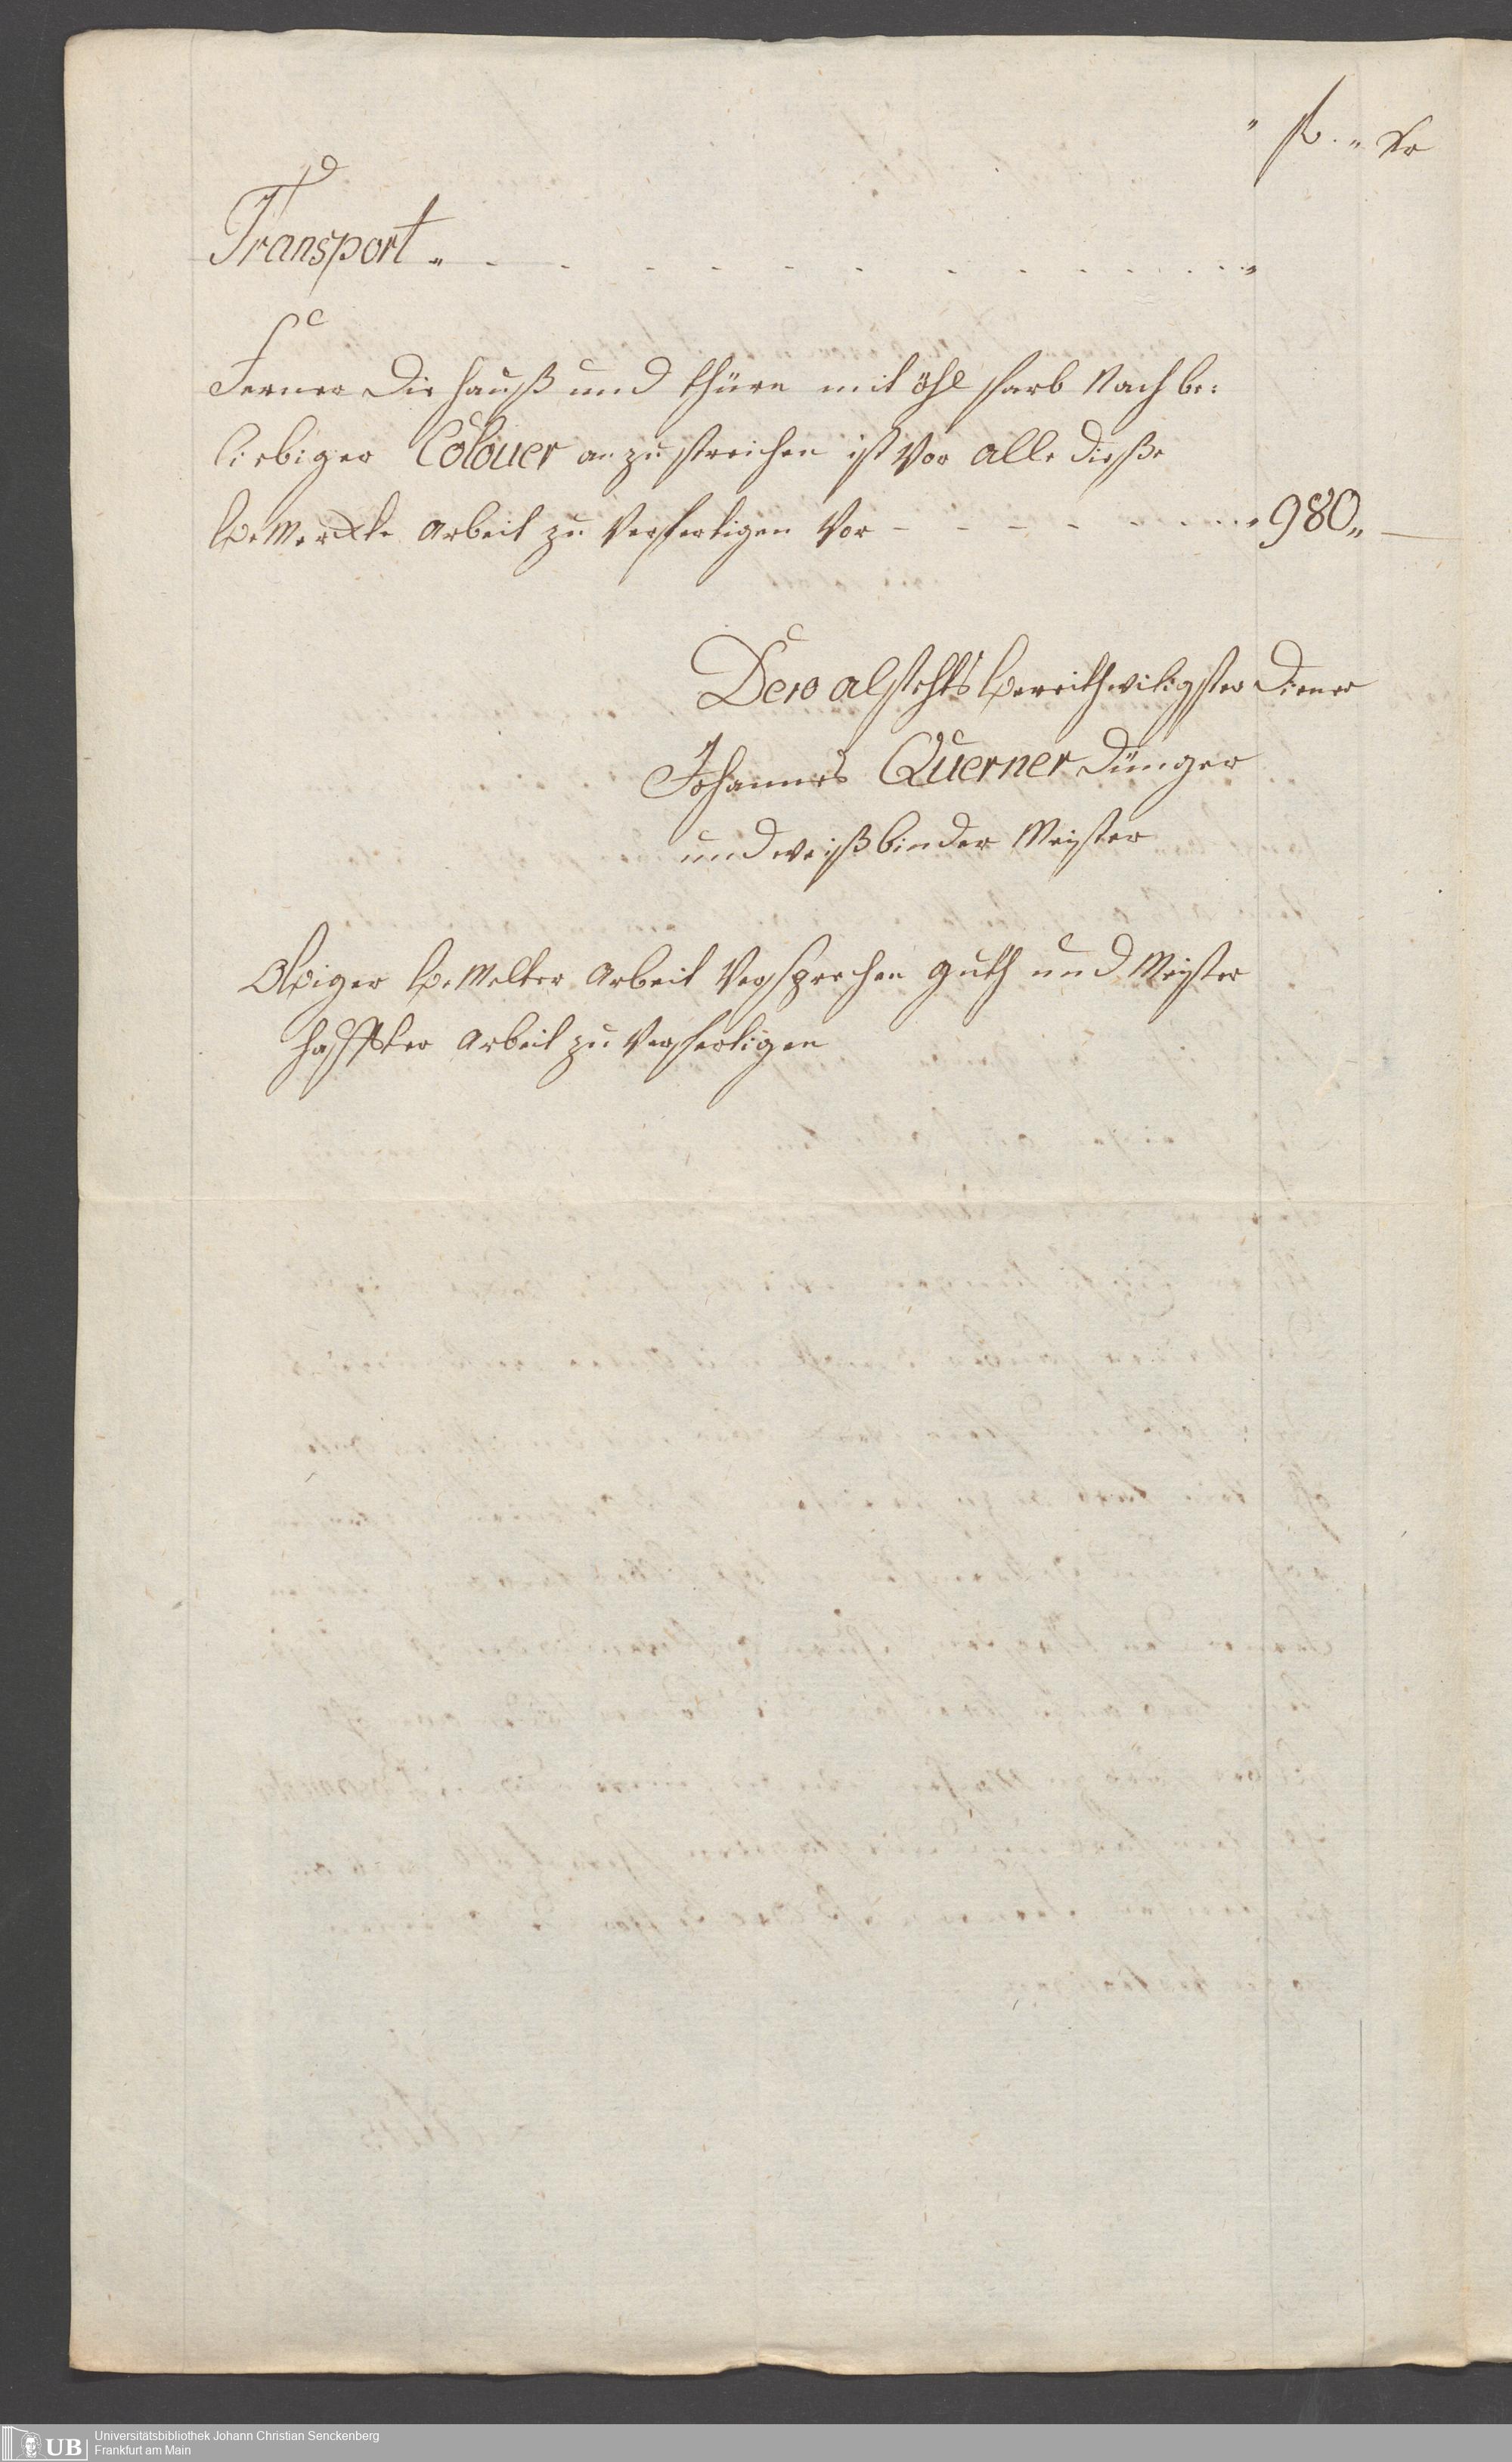 " fl. " Xr
Transport " - - - - - - - - - - - - "
Ferner die hauß und thüre mit öhl farb Nach be:
liebiger Colouer anzustreichen ist Vor alle dieße
be Merckte Arbeit zu Verfertigen Vor - - - - - - - " 980 " —
Dero alstehts bereithwiligster diener
Johannes Querner dünger
und weißbinder Meister
Obiger be Melter Arbeit Versprechen guth und Meister
haffter Arbeit zu Verfertigen
UB Universitätsbibliothek Johann Christian Senckenberg
Frankfurt am Main